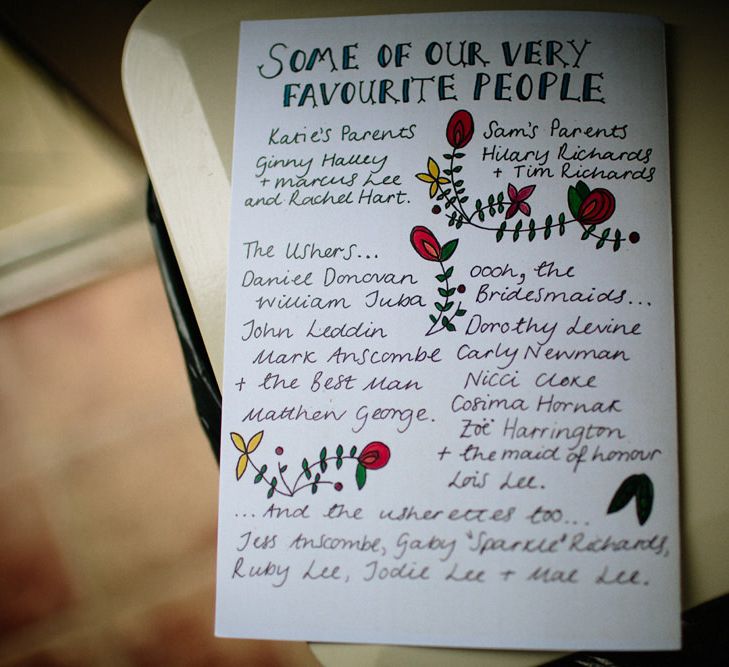 SOME OF OUR VERY
FAVOURITE PEOPLE
Katie's Parents
Ginny Halley
+ Marcus Lee
and Rachel Hart.
Sam's Parents
Hilary Richards
+ Tim Richards
The Ushers...
Daniel Donovan
William Juba
John Leddin
Mark Anscombe
+ the Best Man
Matthew George.
oooh, the
Bridesmaids...
Dorothy Levine
Carly Newman
Nicci Cloke
Cosima Hornak
Zoë Harrington
+ the maid of honour
Lois Lee.
...And the usherettes too...
Jess Anscombe, Gaby "Sparkle" Richards,
Ruby Lee, Jodie Lee + Mae Lee.